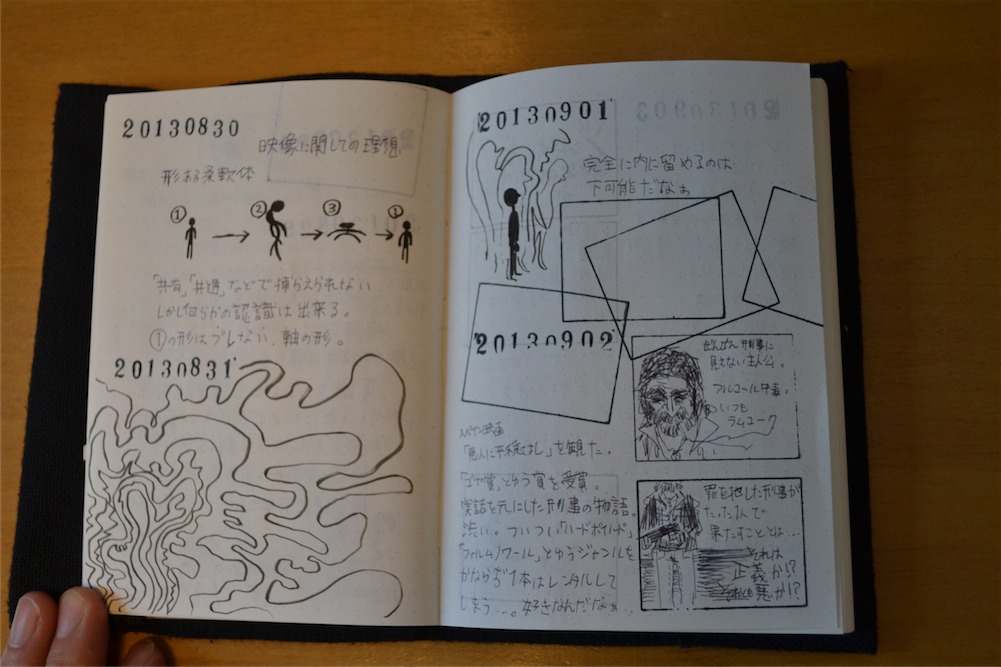 20130830
映像に関しての理想
形ある柔軟体
① ② ③ ①
「共有」「共通」などで捕らえられない
しかし何らかの認識は出来る。
①の形はブレない、軸の形。
20130831
20130901
完全に内に留めるのは
不可能だなぁ
20130902
スペイン映画
「悪人に平穏なし」を観た。
「ゴヤ賞」とゆう賞を受賞。
実話を元にした刑事の物語。
渋い。ついつい「ハードボイルド」
「フィルムノワール」とゆうジャンルを
かならず1本はレンタルして
しまう…。好きなんだなぁ…
ぜんぜん刑事に
見えない主人公。
アルコール中毒。
いつも
ラムコーク
罪を犯した刑事が
たった1人で
果たすこととは…
それは
正義か!?
それとも悪か!?